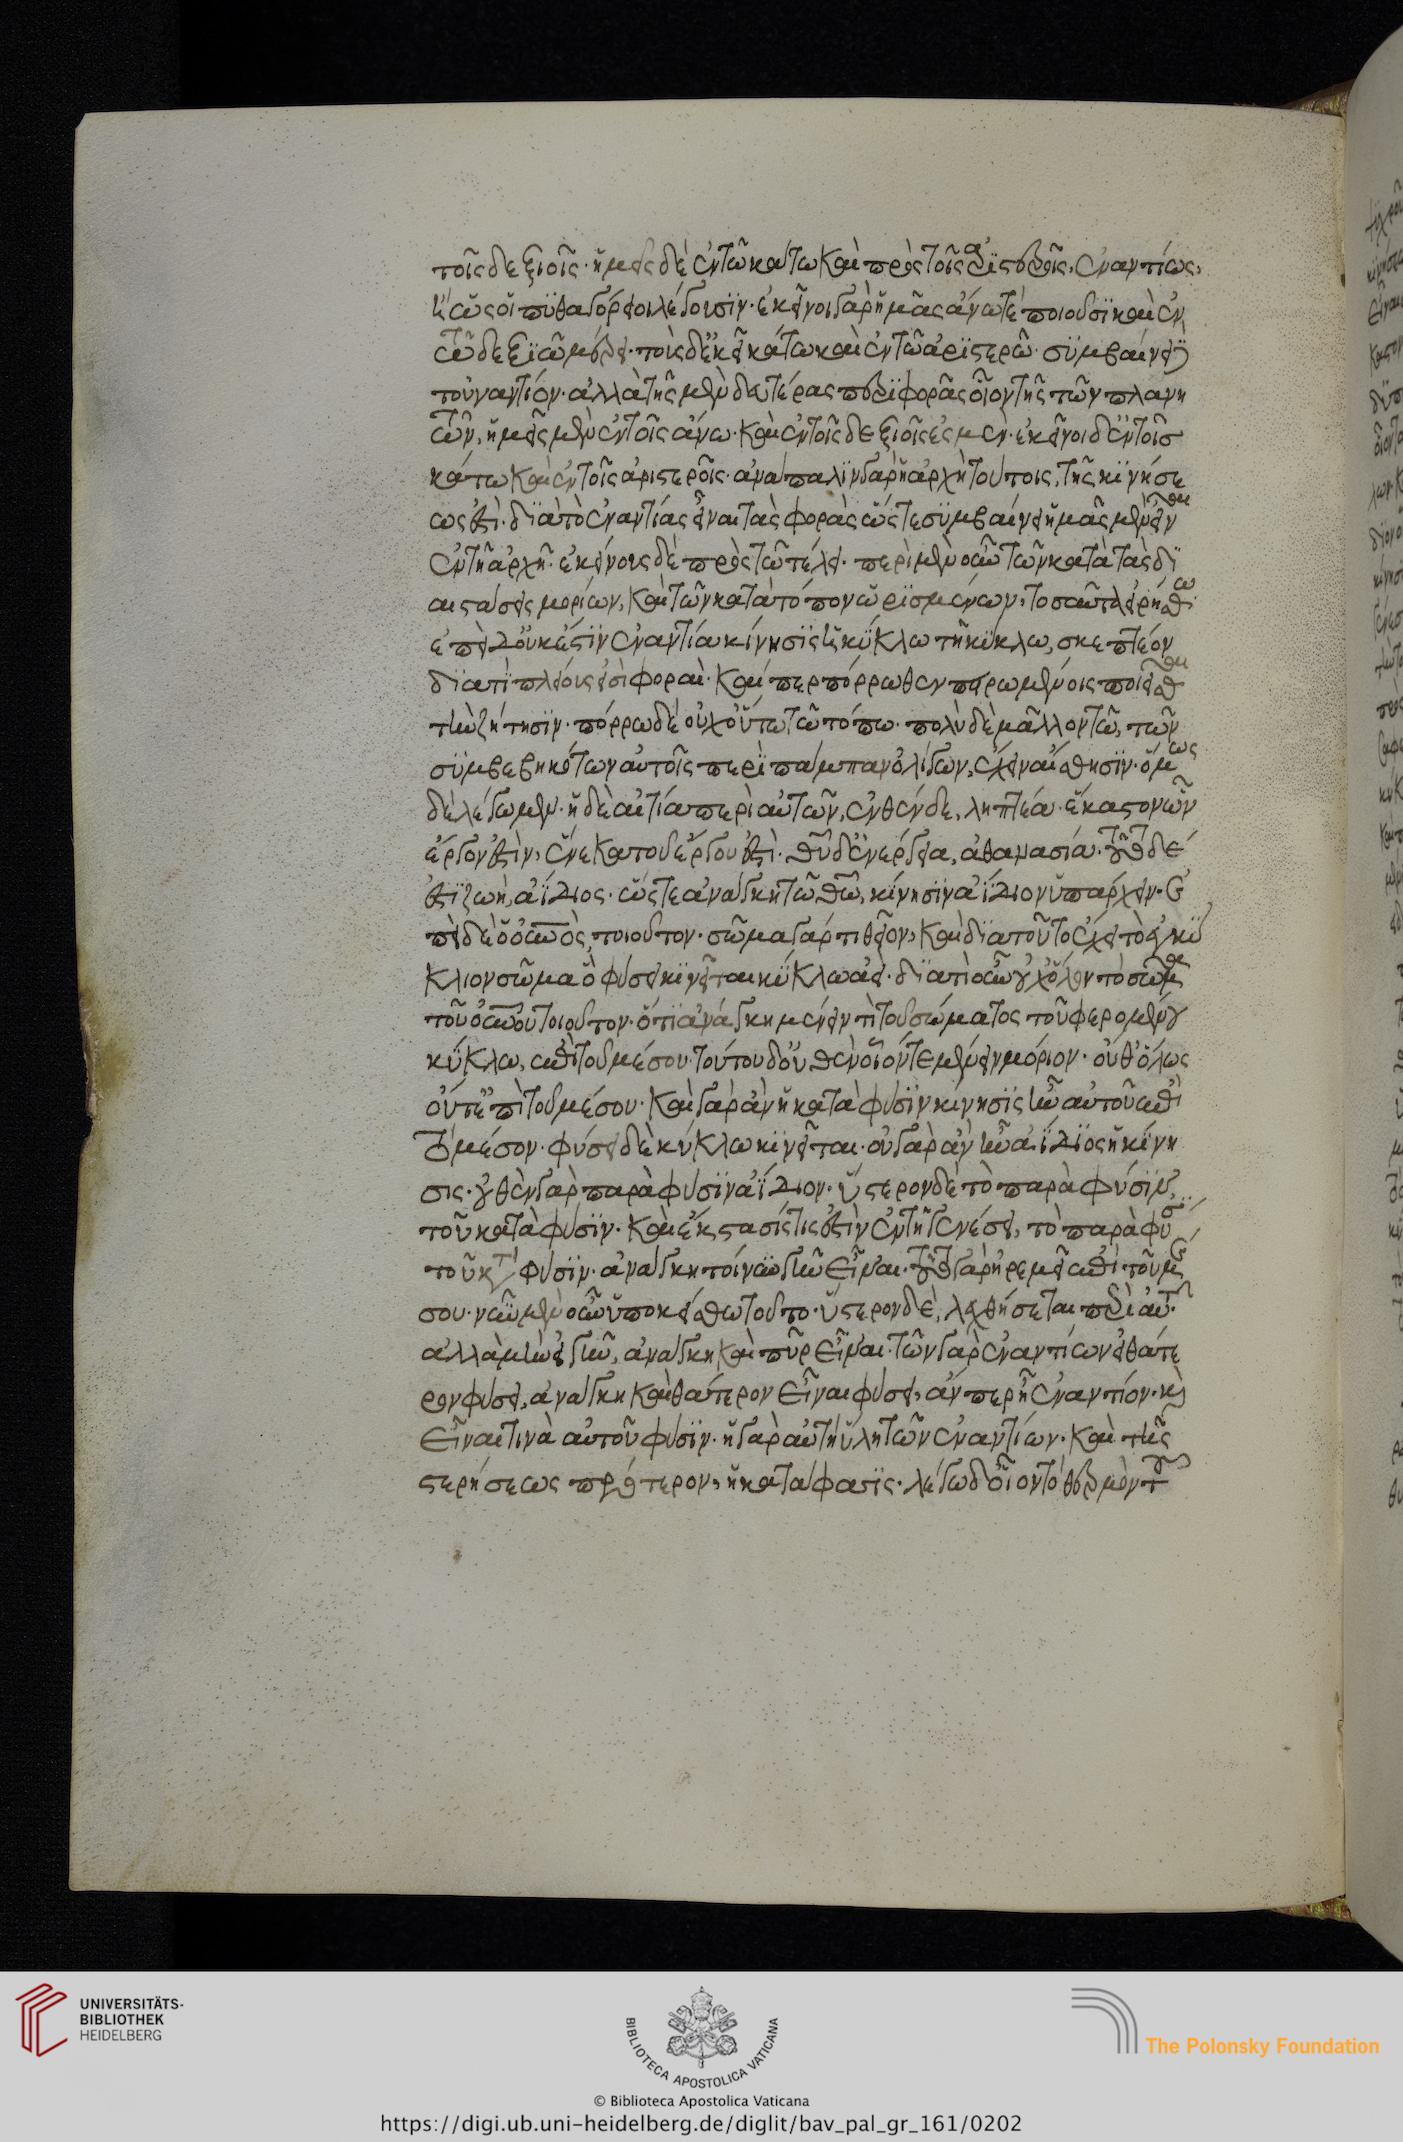 τοῖς δεξιοῖς· ἡμεῖς δὲ ἐν τῶ κάτω καὶ πρὸς τοῖς ἀριστεροῖς, ἐναντίως,
ἢ ὡς οἱ πυθαγόρειοι λέγουσιν· ἐκεῖνοι γὰρ ἡμᾶς ἄνω τε ποιοῦσι καὶ ἐν
τῶ δεξιῶ μέρει· τοὺς δ' ἐκεῖ κάτω καὶ ἐν τῶ ἀριστερῶ· συμβαίνει δὲ
τοὐναντίον· ἀλλὰ τῆς μὲν δευτέρας περιφορᾶς οἷον τῆς τῶν πλανή
των, ἡμεῖς μὲν ἐν τοῖς ἄνω· καὶ ἐν τοῖς δεξιοῖς ἐσμὲν· ἐκεῖνοι δ' ἐν τοῖς
κάτω καὶ ἐν τοῖς ἀριστεροῖς· ἀνάπαλιν γὰρ ἡ ἀρχὴ τούτοις, τῆς κινήσε
ως ἐστὶ· διὰ τὸ ἐναντίας εἶναι τὰς φορὰς ὥστε συμβαίνει ἡμᾶς μὲν εἶναι
ἐν τῆ ἀρχῆ· ἐκείνους δὲ πρὸς τῶ τέλει· περὶ μὲν οὖν τῶν κατὰ τὰς δι
αστάσεις μορίων, καὶ τῶν κατὰ τόπον ὡρισμένων, τοσαῦτα εἰρήσθω·
ἐπεὶ δ' οὐκ ἔστιν ἐναντία κίνησις ἡ κύκλω τῆ κύκλω, σκεπτέον
διατί πλείους εἰσὶ φοραὶ· καίπερ πόρρωθεν πειρωμένοις ποιεῖσθαι
τὴν ζήτησιν· πόρρω δὲ οὐχ οὕτω τῶ τόπω· πολὺ δὲ μᾶλλον τῶ, τῶν
συμβεβηκότων αὐτοῖς περὶ πάμπαν ὀλίγων, ἔχειν αἴσθησιν· ὅμως
δὲ λέγωμεν· ἡ δὲ αἰτία περὶ αὐτῶν, ἐνθένδε, ληπτέα· ἕκαστον ὧν
ἔργον ἐστὶν, ἕνεκα τοῦ ἔργου ἐστὶ· θεοῦ δ' ἐνέργεια, ἀθανασία· τοῦτο δέ
ἐστι ζωὴ ἀΐδιος· ὥστε ἀνάγκη τῶ θεῶ, κίνησιν ἀΐδιον ὑπάρχειν· ἐ
πεὶ δὲ ὁ οὐνὸς τοιοῦτον· σῶμα γάρ τι θεῖον, καὶ διὰ τοῦτο ἔχει τὸ ἐγκύ
κλιον σῶμα ὃ φύσει κινεῖται κύκλω ἀεί· διατί οὖν οὐχ ὅλον τὸ σῶμα
τοῦ οὐνοῦ τοιοῦτον· ὅτι ἀνάγκη μένειν τὶ τοῦ σώματος τοῦ φερομένου
κύκλω, ἐπὶ τοῦ μέσου· τούτου δ' οὐθὲν οἷόν τε μένειν μόριον· οὔθ' ὅλως
οὔτ' ἐπὶ τοῦ μέσου· καὶ γὰρ ἂν ἡ κατὰ φύσιν κίνησις ἦν αὐτοῦ ἐπὶ
τὸ μέσον· φύσει δὲ κύκλω κινεῖται· οὐ γὰρ ἂν ἦν ἀΐδιος ἡ κίνη
σις· οὐθὲν γὰρ παρὰ φύσιν ἀΐδιον· ὕστερον δὲ τὸ παρὰ φύσιν,
τοῦ κατὰ φύσιν· καὶ ἔκστασίς τίς ἐστὶν ἐν τῆ γενέσει, τὸ παρὰ φύσιν
τοῦ κατὰ φύσιν· ἀνάγκη τοίνυν γῆν εἶναι· τοῦτο γὰρ ἠρεμεῖ ἐπὶ τοῦ μέ
σου· νῦν μὲν οὖν ὑποκείσθω τοῦτο· ὕστερον δὲ, δειχθήσεται περὶ αὐτοῦ·
ἀλλὰ μὴν εἰ γῆν, ἀνάγκη καὶ πῦρ εἶναι· τῶν γὰρ ἐναντίων εἰ θάτε
ρον φύσει, ἀνάγκη καὶ θάτερον εἶναι φύσει, ἄνπερ ἦ ἐναντίον· καὶ
εἶναι τινὰ αὐτοῦ φύσιν· ἡ γὰρ αὐτὴ ὕλη τῶν ἐναντίων· καὶ τῆς
στερήσεως πρότερον, ἡ κατάφασις· λέγω δ' οἷον τὸ θερμὸν τοῦ
UNIVERSITÄTS-
BIBLIOTHEK
HEIDELBERG
BIBLIOTECA APOSTOLICA VATICANA
© Biblioteca Apostolica Vaticana
The Polonsky Foundation
https://digi.ub.uni-heidelberg.de/diglit/bav_pal_gr_161/0202